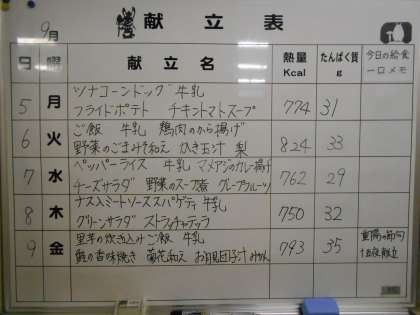 9月
献立表
9 曜 献立名 熱量 Kcal たんぱく質 g 今日の給食 一口メモ
5 月 ツナコーンドッグ 牛乳 774 31
フライドポテト チキントマトスープ
6 火 ご飯 牛乳 鶏肉のから揚げ 824 33
野菜のごまみそ和え ひき玉汁 梨
7 水 ペッパーライス 牛乳 マメアジのカレー揚げ 762 29
チーズサラダ 野菜のスープ煮 グレープフルーツ
8 木 ナスとミートソーススパゲティ 牛乳 750 32
グリーンサラダ ストラッチャテッラ
9 金 里芋の炊き込みご飯 牛乳 793 35 重陽の節句
鮭の香味焼き 菊花和え お月見団子汁 みかん 十五夜献立